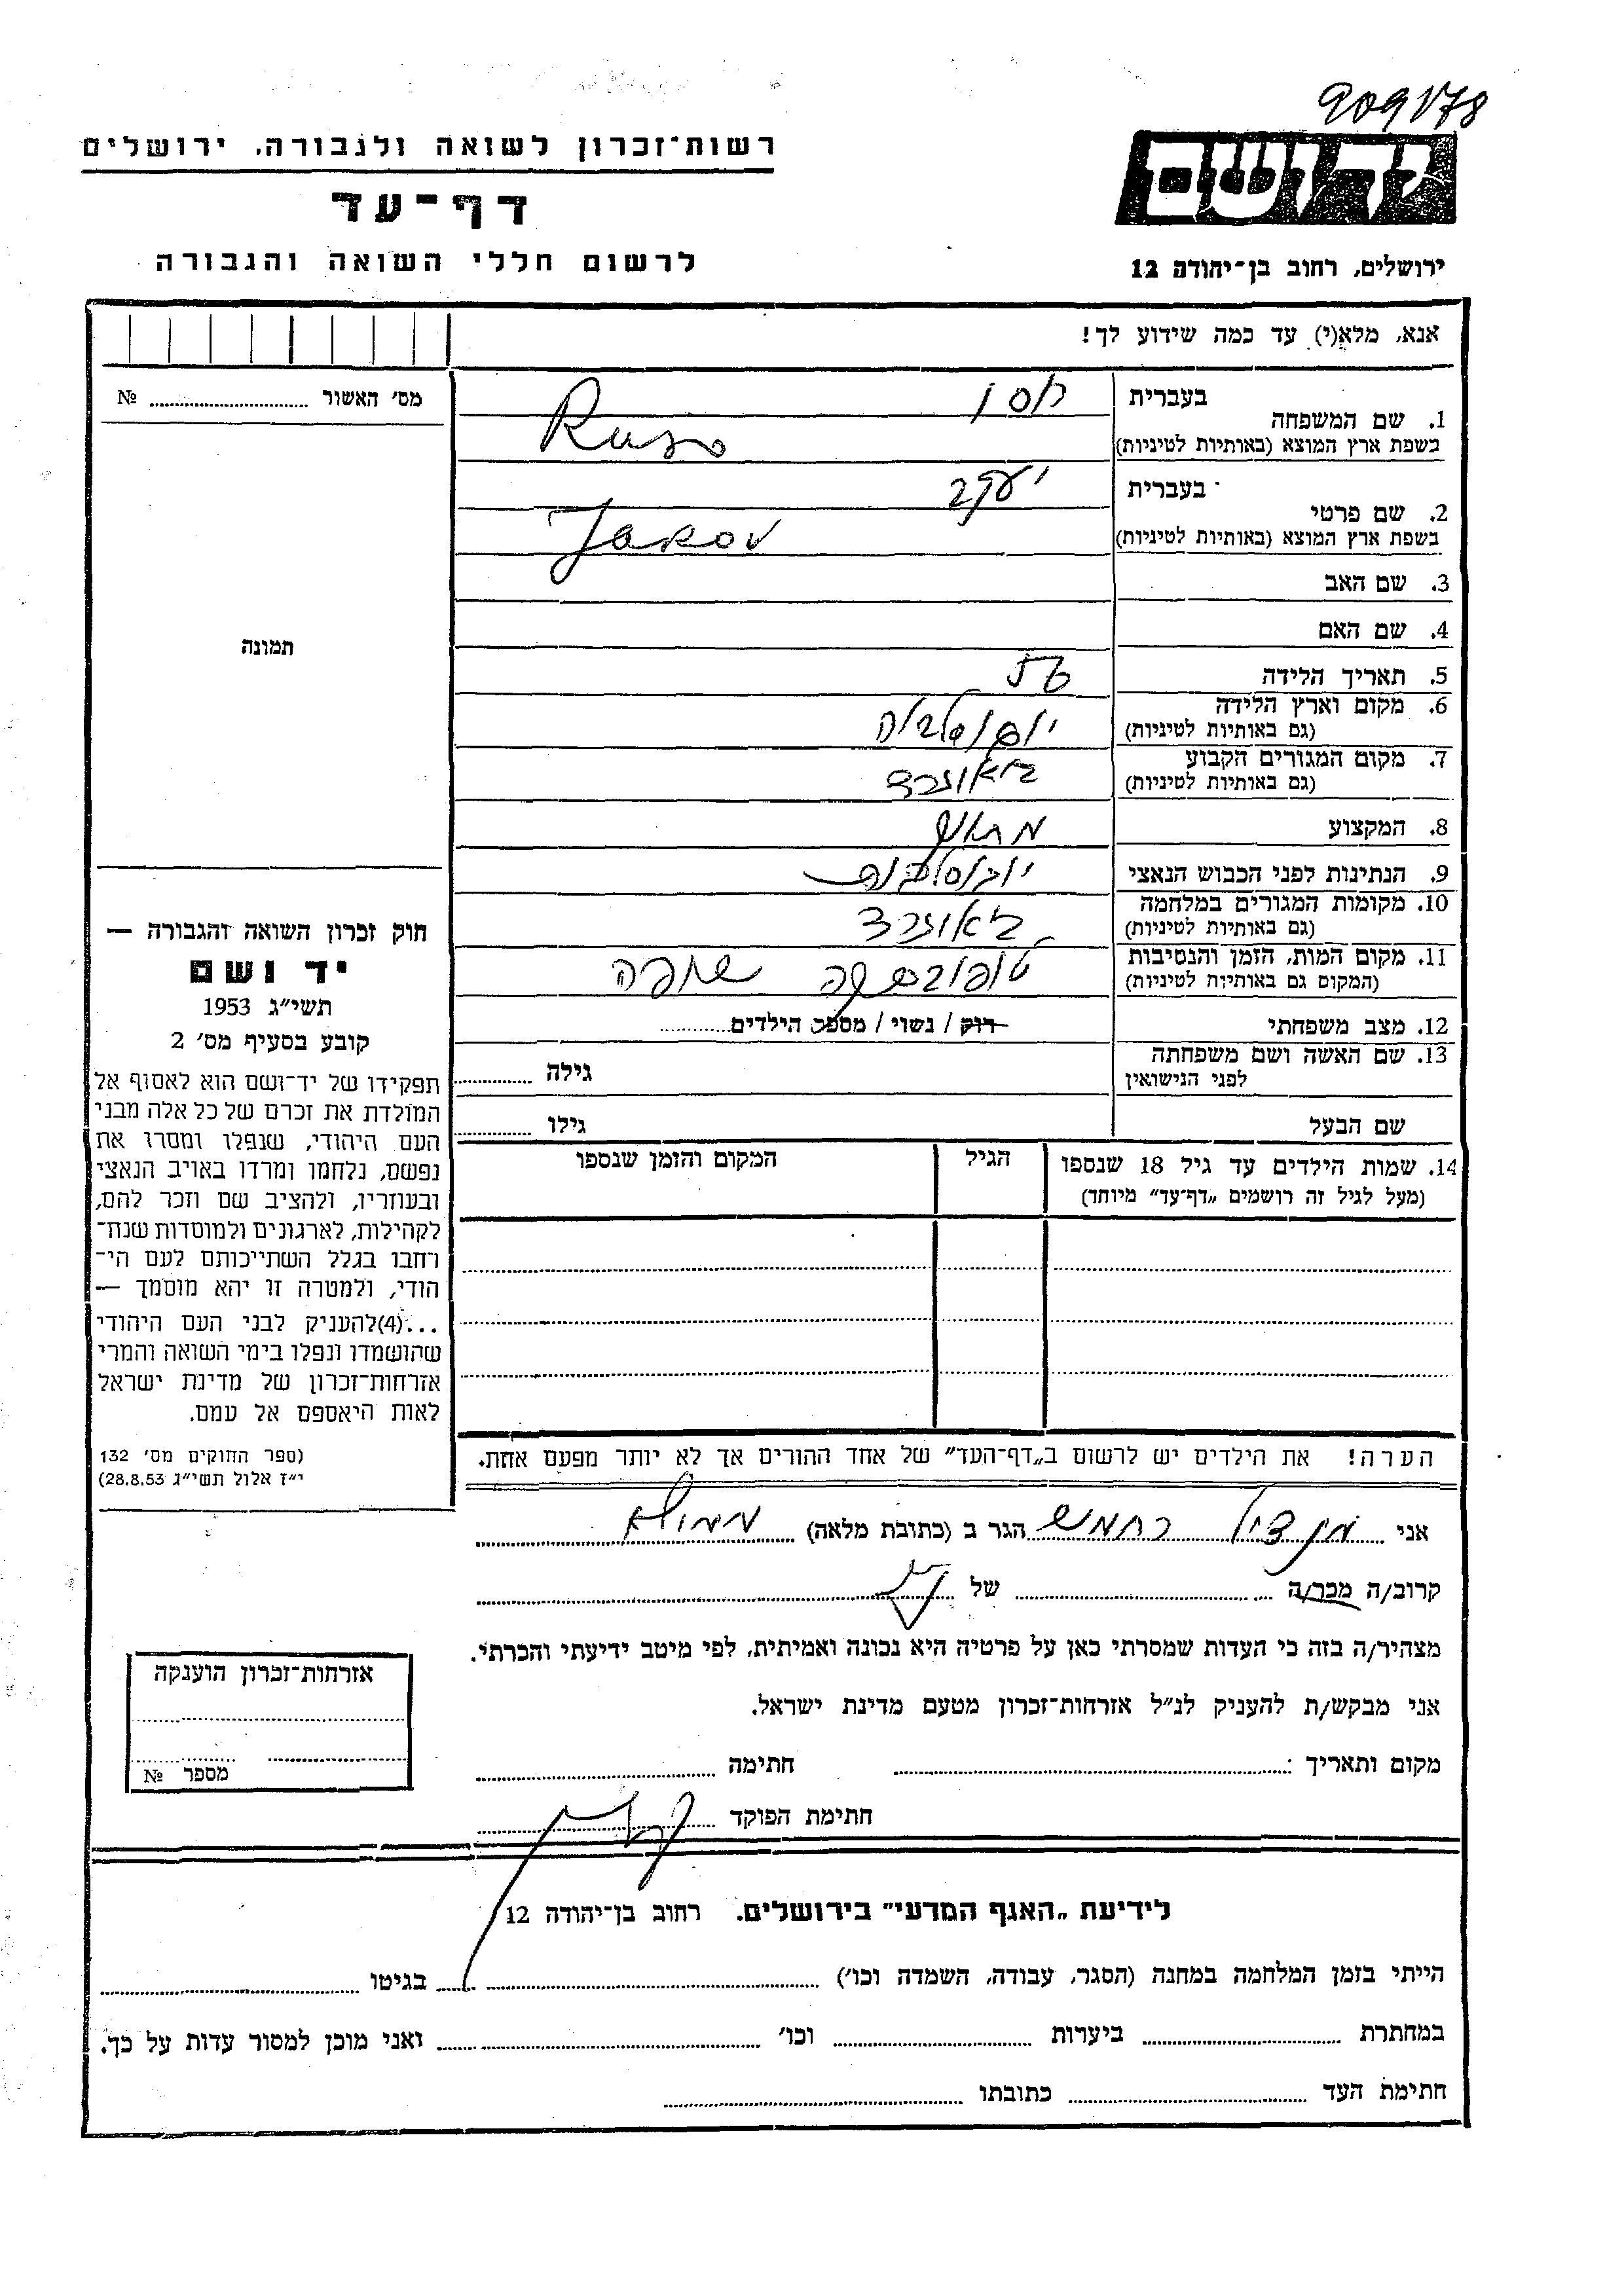 909178
רשות־זכרון לשואה ולגבורה, ירושלים
דף־עד
לרשום חללי השואה והגבורה
יד ושם
ירושלים, רחוב בן־יהודה 12
אנא, מלא(י) עד כמה שידוע לך!
מס׳ האשור № 
1. שם המשפחה בעברית רוסו
בשפת ארץ המוצא (באותיות לטיניות) Ruso
2. שם פרטי בעברית יעקב
בשפת ארץ המוצא (באותיות לטיניות) Jakov
3. שם האב
4. שם האם
5. תאריך הלידה
6. מקום וארץ הלידה
(גם באותיות לטיניות) יוגוסלביה
7. מקום המגורים הקבוע
(גם באותיות לטיניות) באוגרד
8. המקצוע
9. הנתינות לפני הכבוש הנאצי יוגוסלבית
10. מקומות המגורים במלחמה
(גם באותיות לטיניות) באוגרד
11. מקום המות, הזמן והנסיבות
(המקום גם באותיות לטיניות) טופובסקה שופה
12. מצב משפחתי רוק / נשוי / מספר הילדים
13. שם האשה ושם משפחתה
לפני הנישואין גילה
שם הבעל גילו
14. שמות הילדים עד גיל 18 שנספו
(מעל לגיל זה רושמים „דף־עד״ מיוחד)
הגיל
המקום והזמן שנספו
הערה! את הילדים יש לרשום ב„דף־העד״ של אחד ההורים אך לא יותר מפעם אחת.
תמונה
חוק זכרון השואה והגבורה —
יד ושם
תשי״ג 1953
קובע בסעיף מס׳ 2
תפקידו של יד־ושם הוא לאסוף אל
המולדת את זכרם של כל אלה מבני
העם היהודי, שנפלו ומסרו את
נפשם, נלחמו ומרדו באויב הנאצי
ובעוזריו, ולהציב שם וזכר להם,
לקהילות, לארגונים ולמוסדות שנח־
רחבו בגלל השתייכותם לעם הי־
הודי, ולמטרה זו יהא מוסמך —
...(4) להעניק לבני העם היהודי
שהושמדו ונפלו בימי השואה והמרי
אזרחות־זכרון של מדינת ישראל
לאות היאספם אל עמם.
(ספר החוקים מס׳ 132
י״ז אלול תשי״ג 28.8.53)
אני מנדיל הגר ב (כתובת מלאה)
קרוב/ה מכר/ה של
מצהיר/ה בזה כי העדות שמסרתי כאן על פרטיה היא נכונה ואמיתית, לפי מיטב ידיעתי והכרתי.
אני מבקש/ת להעניק לנ״ל אזרחות־זכרון מטעם מדינת ישראל.
מקום ותאריך : חתימה
חתימת הפוקד
אזרחות־זכרון הוענקה
מספר №
לידיעת „האגף המדעי״ בירושלים, רחוב בן־יהודה 12
הייתי בזמן המלחמה במחנה (הסגר, עבודה, השמדה וכו׳) בגיטו
במחתרת ביערות וכו׳ ואני מוכן למסור עדות על כך.
חתימת העד כתובתו